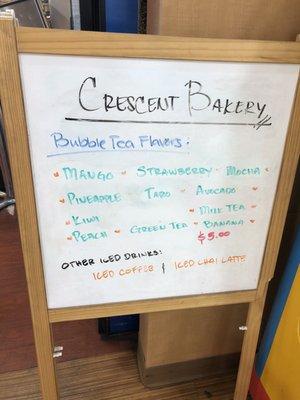 Crescent Bakery
Bubble Tea Flavors:
Mango Strawberry Mocha
Pineapple Taro Avocado
Kiwi Milk Tea
Peach Green Tea Banana
$5.00
Other Iced Drinks:
Iced Coffee & Iced Chai Latte